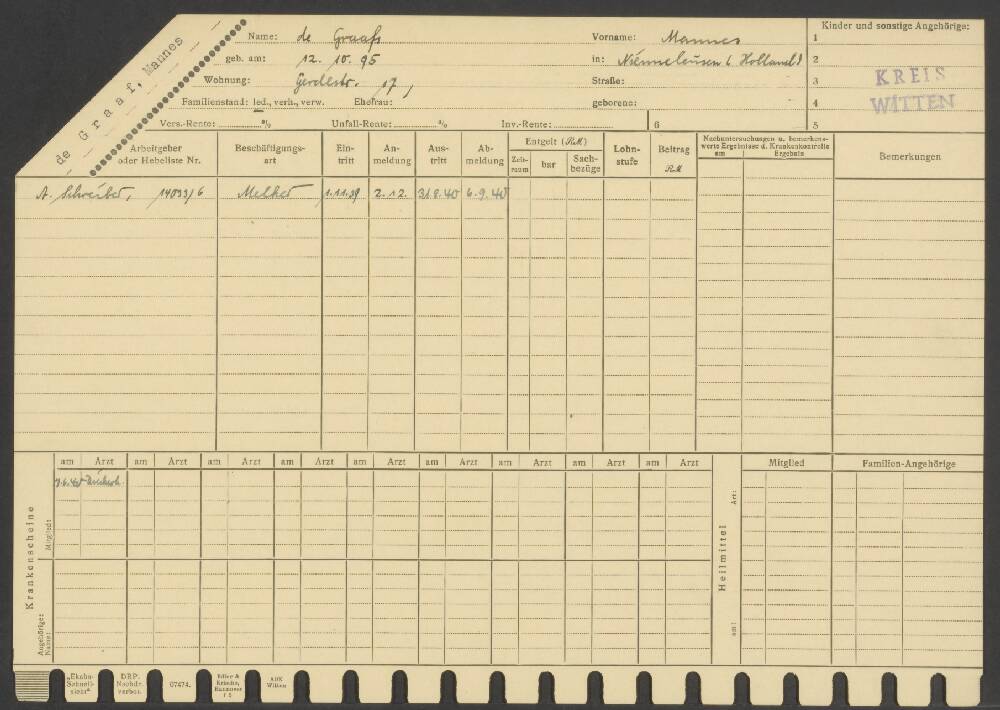 de Graaf, Mannes
Name: de Graaf Vorname: Mannes
geb. am: 12. 10. 95 in: (Holland)
Wohnung: 17, Straße:
Familienstand: led., verh., verw. Ehefrau: geborene:
Vers.-Rente: % Unfall-Rente: % Inv.-Rente: 6
Kinder und sonstige Angehörige:
1
2
3
4
5
KREIS
WITTEN
Arbeitgeber oder Hebeliste Nr. Beschäftigungsart Eintritt Anmeldung Austritt Abmeldung Entgelt (RM) Zeitraum bar Sachbezüge Lohnstufe Beitrag RM Nachuntersuchungen u. bemerkenswerte Ergebnisse d. Krankenkontrolle am Ergebnis Bemerkungen
A. Schreiber, 14033/6 Melker 1.11.39 2.12. 31.8.40 6.9.40
am Arzt am Arzt am Arzt am Arzt am Arzt am Arzt am Arzt am Arzt am Arzt
Krankenscheine
Mitglied:
Angehörige:
Name:
Heilmittel
Art:
am:
Mitglied Familien-Angehörige
„Ekaha-Schnellsicht“
DRP. Nachdr. verbot.
67474.
Edler & Krische, Hannover
AOK Witten